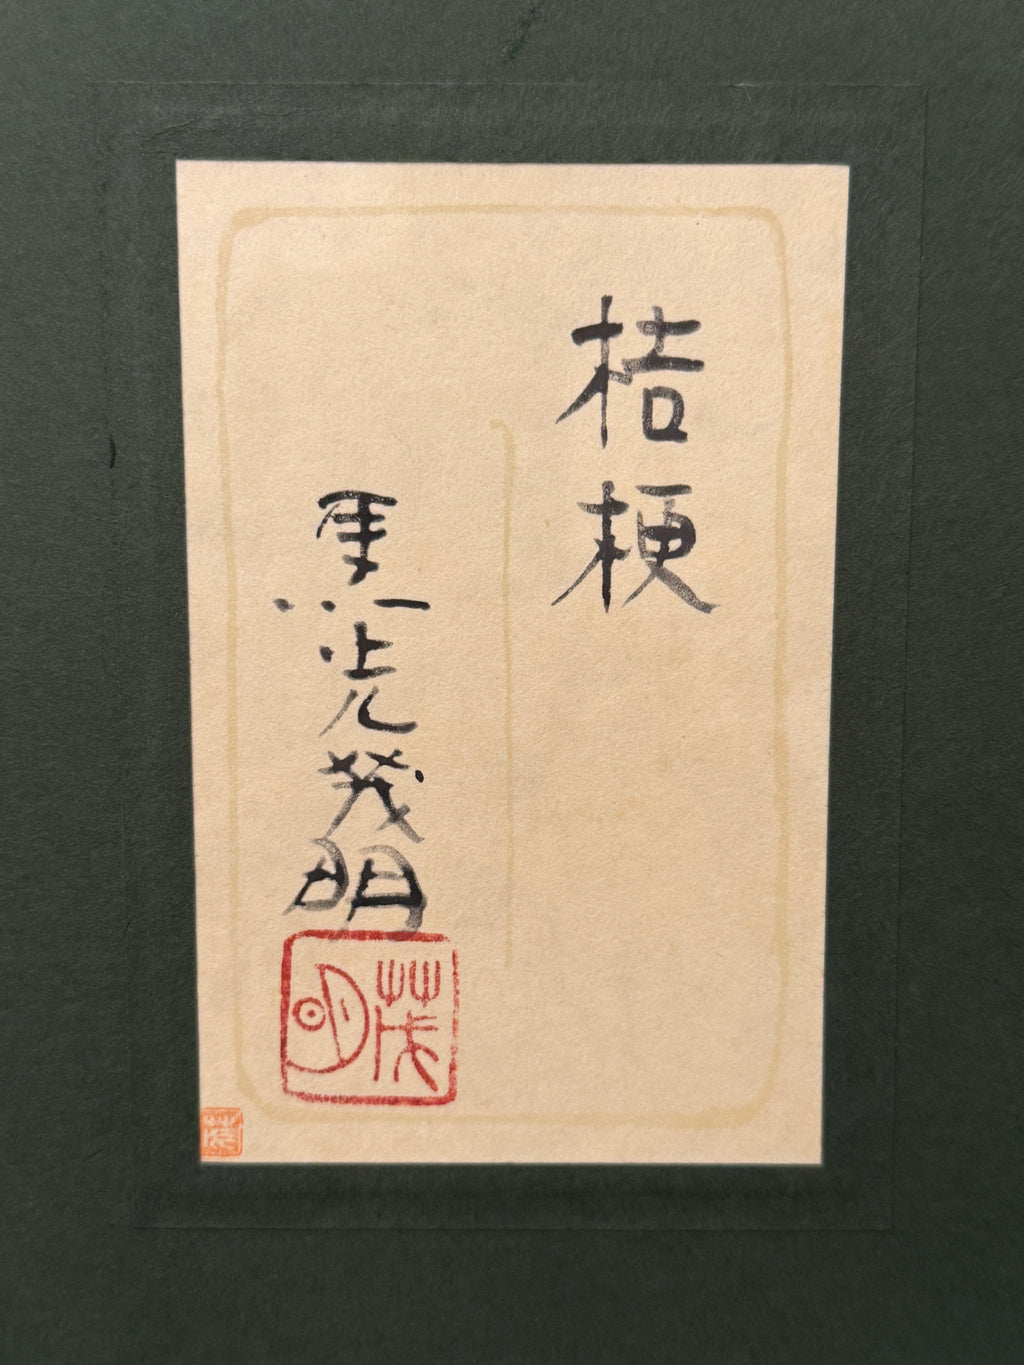 桔梗
黒光茂明
茂明
茂